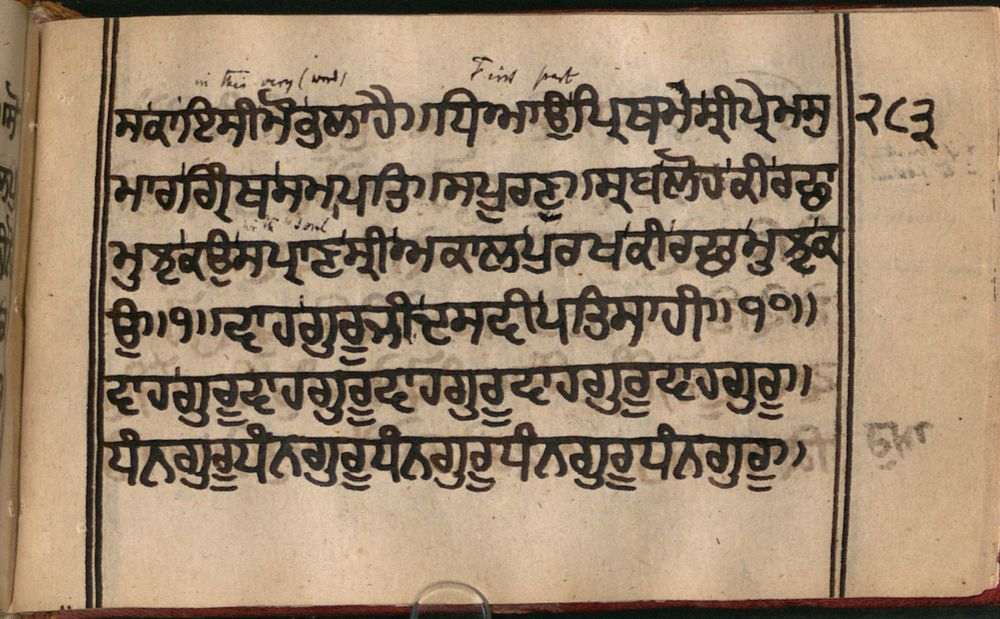 in this very (word) First part
ਧਿਆਉਪ੍ਰਿਥਮੇਸ੍ਰੀਪ੍ਰੇਮਸੁ ੨੮੩
ਮਾਰਗਗ੍ਰਿੰਥਸਮਸਪਤਿ॥ਸਪੂਰਣ॥ਸ੍ਰਬਲੋਹਕੀਰਛਾ
soul
ਮੁਝਕਉਸਪ੍ਰਾਣਸ੍ਰੀਅਕਾਲਪੁਰਖਕੀਰਛਾਮੁਝਕ
ਉ॥੧॥ਵਾਹਗੁਰੂਜੀਦਸਦੀਪਤਿਸਾਹੀ॥੧੦॥
ਵਾਹਗੁਰੂਵਾਹਗੁਰੂਵਾਹਗੁਰੂਵਾਹਗੁਰੂਵਾਹਗੁਰੂ॥
ਧੰਨਗੁਰੂਧੰਨਗੁਰੂਧੰਨਗੁਰੂਧੰਨਗੁਰੂਧੰਨਗੁਰੂ॥